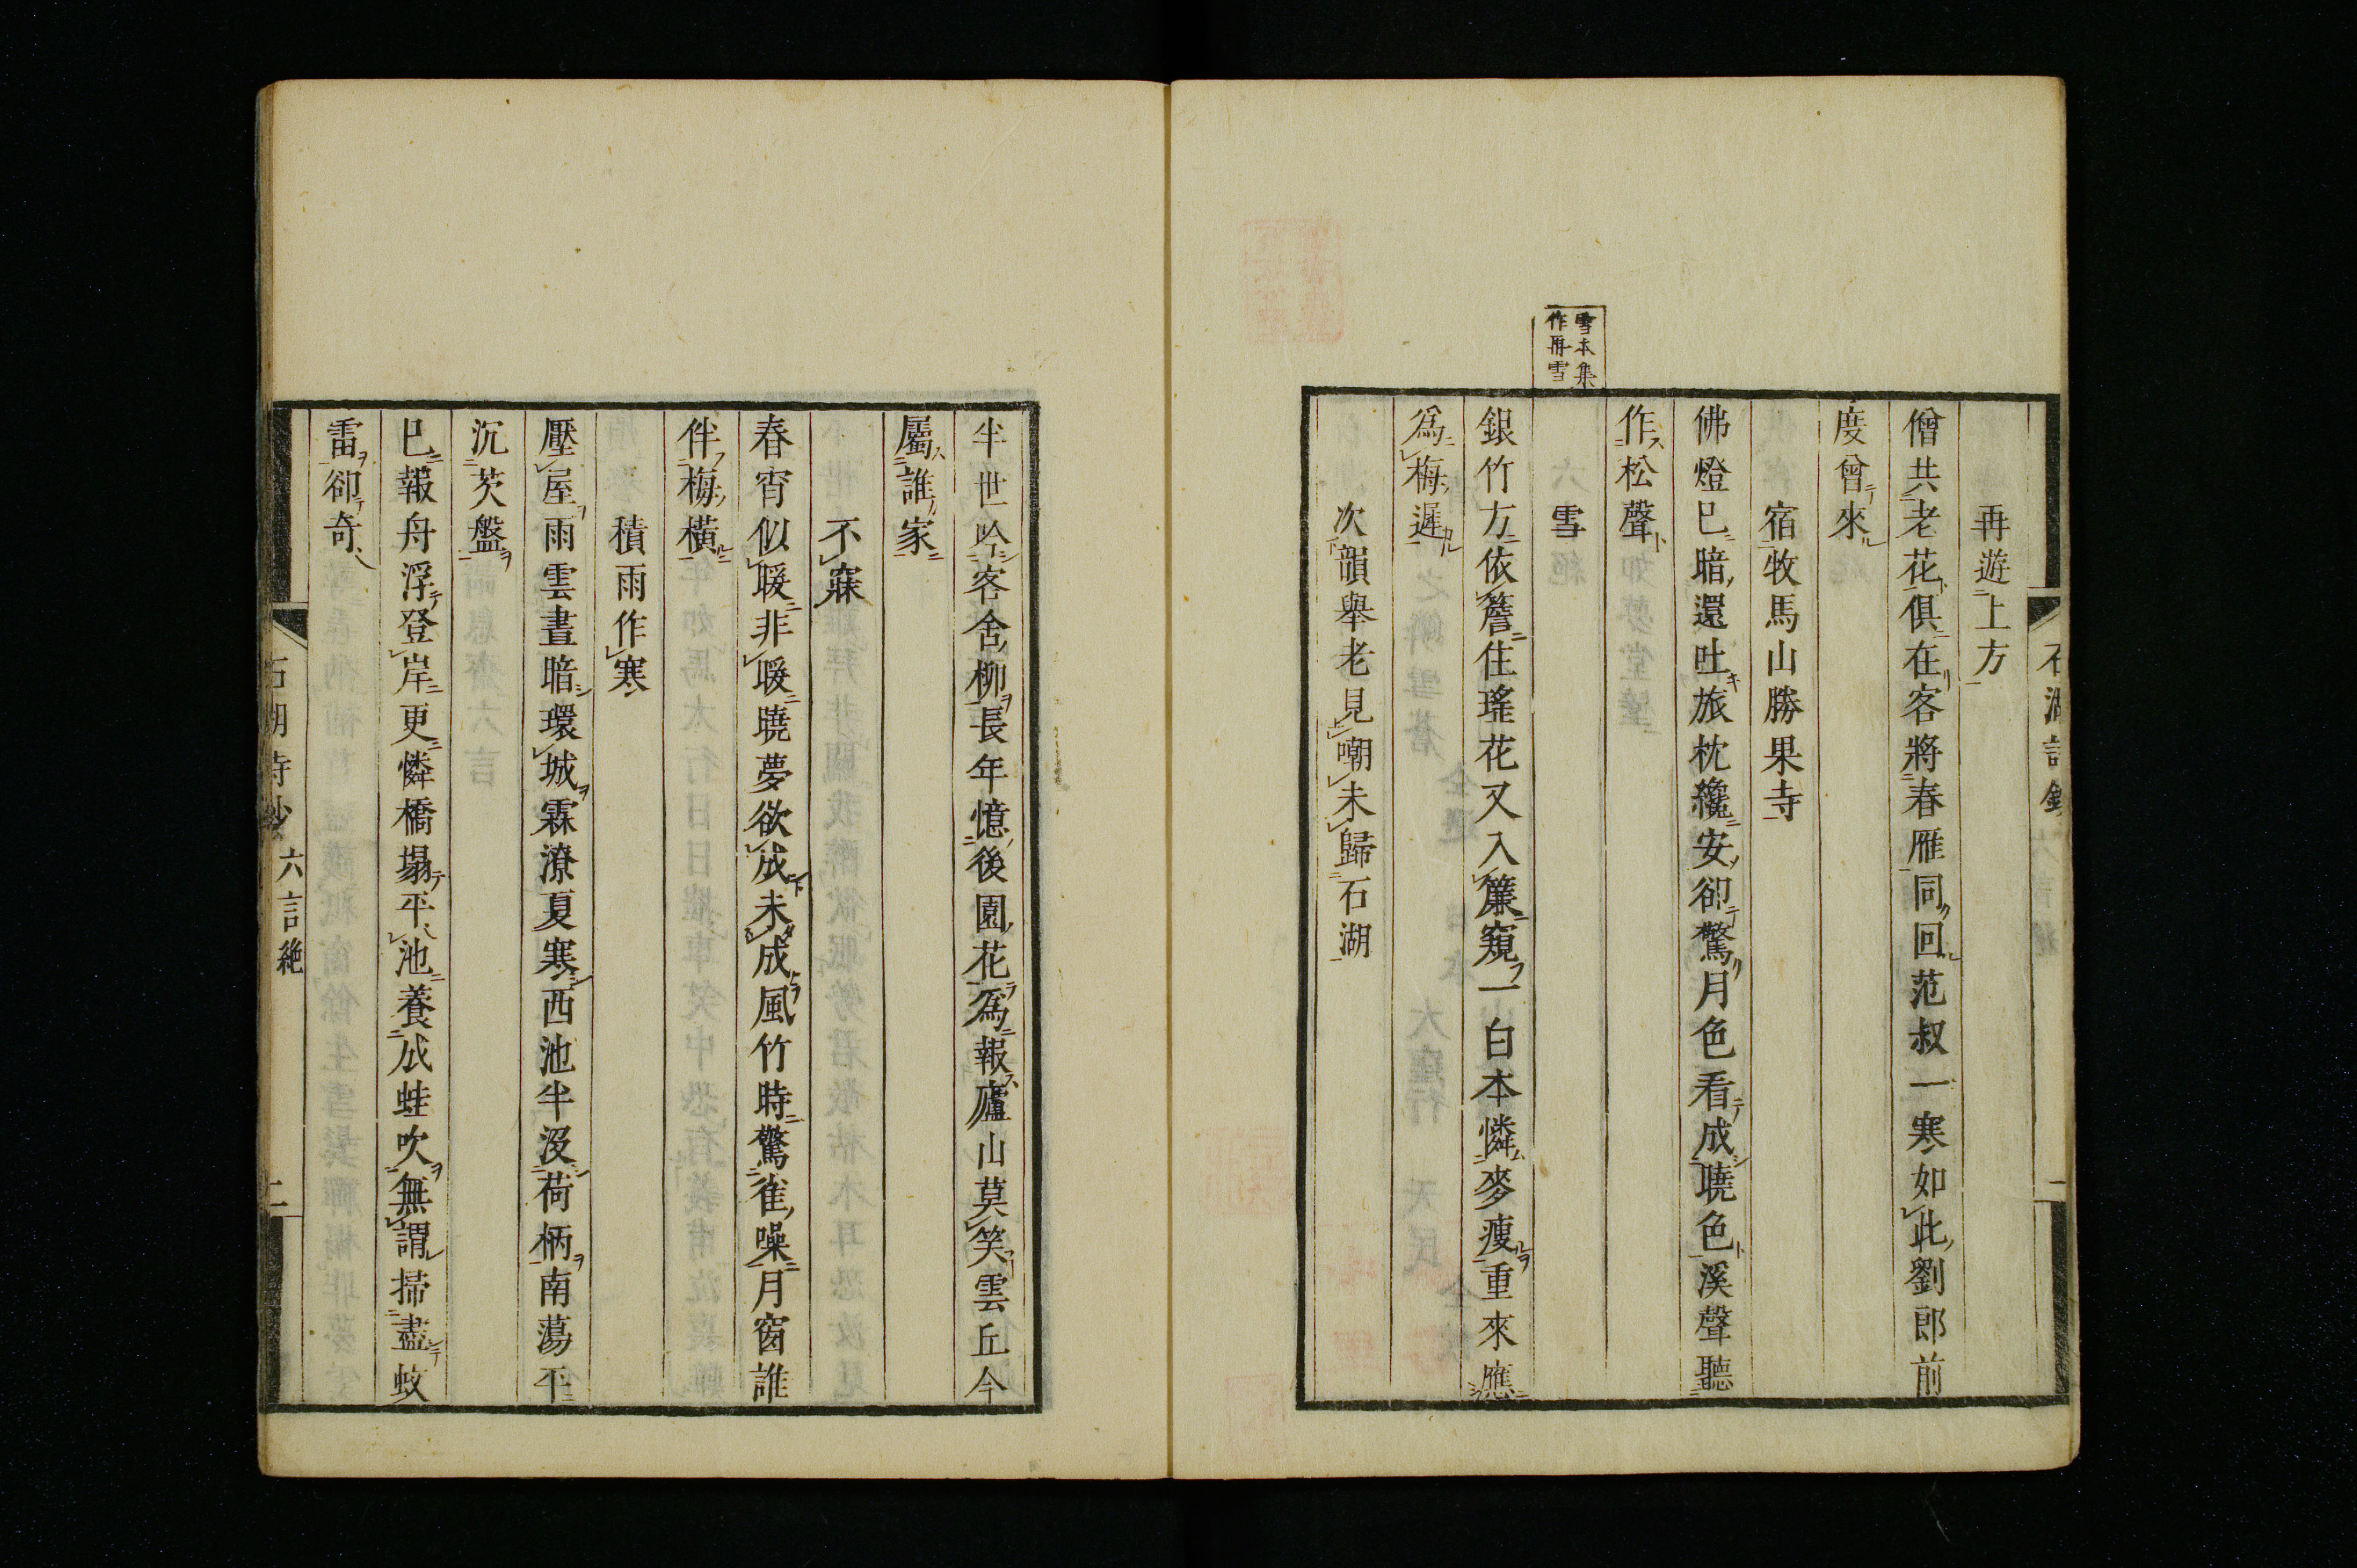 石湖詩鈔 一
再遊上方
僧共老花俱在客將春雁同回范叔一寒如此劉郎前
度曾來
宿牧馬山勝果寺
佛燈已暗還吐旅枕纔安卻驚月色看成曉色溪聲聽
作松聲
雪本集
作再雪
雪
銀竹方依簷住瑤花又入簾窺一白本憐麥瘦重來應
爲梅遲
次韻舉老見嘲未歸石湖
半世吟客舍柳長年憶後園花爲報廬山莫笑雲丘今
屬誰家
不寐
春宵似暖非暖曉夢欲成未成風竹時驚雀噪月窗誰
伴梅橫
積雨作寒
壓屋雨雲晝暗環城霖潦夏寒西池半沒荷柄南蕩平
沉芡盤
已報舟浮登岸更憐橋塌平池養成蛙吹無謂掃盡蚊
雷卻奇
石湖詩鈔 六言絶 二